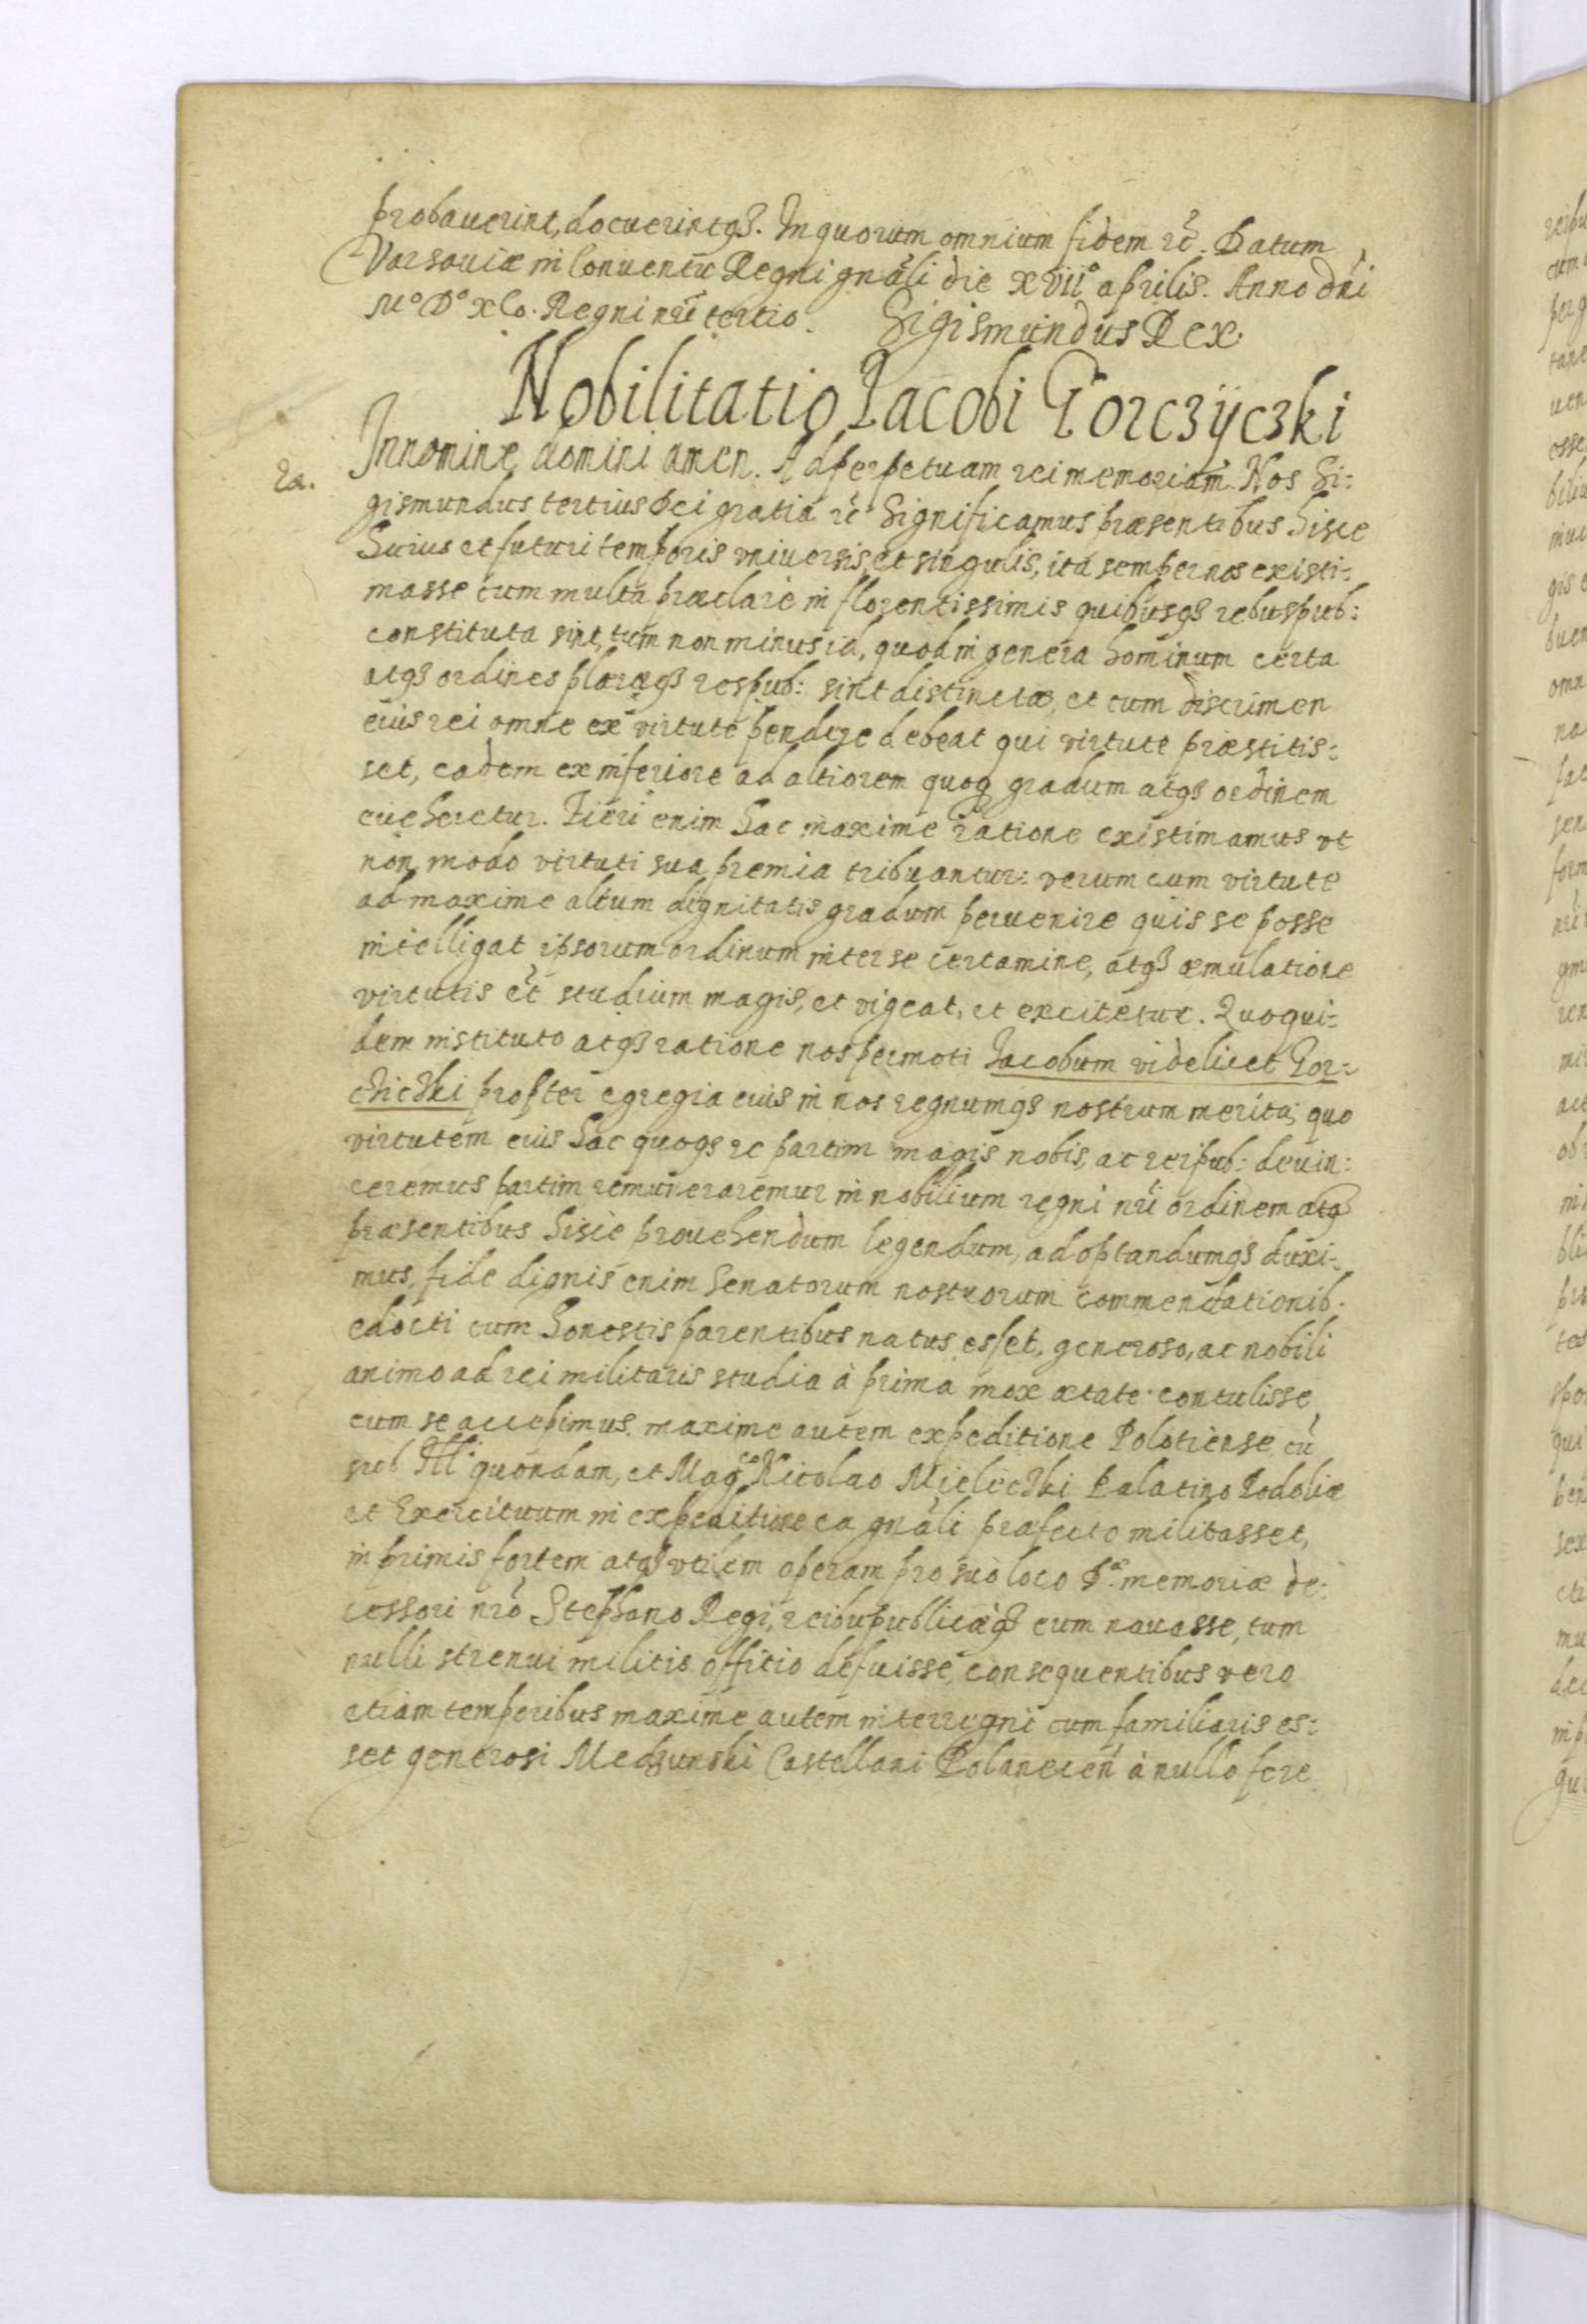 probauerint, docuerintqȝ. In quorum omnium fidem rc̃. Datum
Varsaviæ in Conventu Regni gnãli die XVII° aprilis. Anno dñi
M° D° xC°. Regni nri̅ tertio. Sigismundus Rex.
Nobilitatio Iacobi Gorczÿczki
In nomine domini amen. Ad perpetuam rei memoriam. Nos Si:
gismundus tertius Dei gratia rc̃ Significamus præsentibus hisce
huius et futuri temporis vniuersis, et singulis, ita semper nos existi:
masse cum multa præclare in florentissimis quibusqȝ rebuspub:
constituta sint, tum non minus id, quod in genera hominum certa
atqȝ ordines pleræqȝ respub: sint distinctæ, et cum discrimen
eius rei omne ex virtute pendere debeat qui virtute præstitis:
set, eadem ex inferiore ad altiorem quoqȝ gradum atqȝ ordinem
eueheretur. Fieri enim hac maxime ratione existimamus vt
non modo virtuti sua premia tribuantur: verum cum virtute
ad maxime altum dignitatis gradum peruenire quis se posse
intelligat ipsorum ordinum inter se certamine, atqȝ æmulatione
virtutis et̃ studium magis, et vigeat, et excitetur. Quo qui:
dem instituto atqȝ ratione nos permoti Iacobum videlicet Gor:
cziczki propter egregia eius in nos regnumqȝ nostrum merita, quo
virtutem eius hac quoqȝ re partim magis nobis, ac reipub: deuin:
ceremus partim remuneraremur in nobilium regni nri̅ ordinem atqȝ
præsentibus hisce prouehendum legendum, adoptandumqȝ duxi:
mus, fide dignis enim Senatorum nostrorum commendationib.
edocti cum honestis parentibus natus esset, generoso, ac nobili
animo ad rei militaris studia à prima mox ætate contulisse
eum se accepimus. maxime autem expeditione Polotiense cũ
sub Illi quondam, et Mag.co Nicolao Mieleczki Palatino Podoliæ
et Exercituum in expeditione ea gnãli præfecto militasset,
in primis fortem atqȝ vtilem operam pro suo loco D.æ memoriæ de:
cessori nrõ Stephano Regi, reibupublicæqȝ eum nauasse, tum
nulli strenui militis offitio defuisse, consequentibus vero
etiam temporibus maxime autem interregni cum familiaris es:
set generosi Medzunski Castellani Polanecen̅ à nullo fere